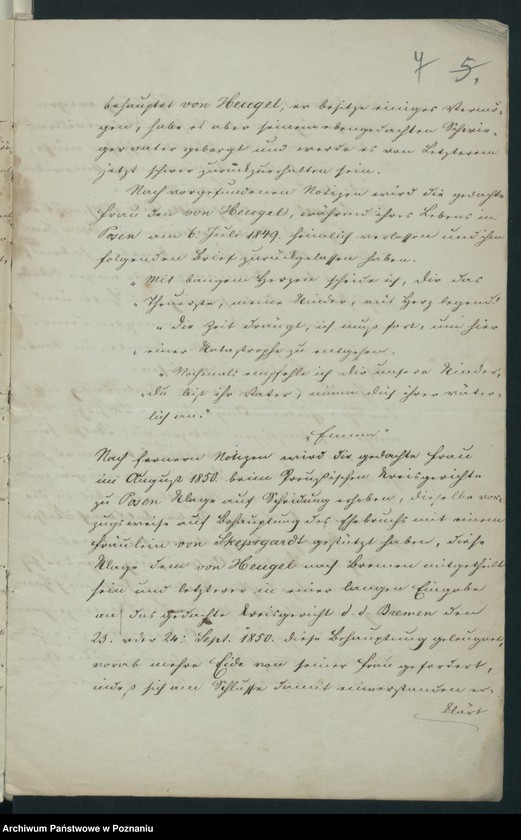 4 5.
behauptet von Heugel, er besitze einiges Vermö-
gen, habe es aber seinem ebengedachten Schwie-
gervater geborgt und werde es von Letzterem
jetzt schwer zurückzuerhalten sein.
Nach vorgefundenen Notizen wird die gedachte
Frau den von Heugel, während ihres Lebens in
Posen am 6. Juli 1849. heimlich verlassen und ihm
folgenden Brief zurückgelassen haben.
"Mit bangem Herzen scheide ich, Dir das
"Theuerste, meine Kinder, ans Herz legend!
"Die Zeit drängt, ich muß fort, um hier
"einer Katastrophe zu entgehen.
"Nochmals empfehle ich dir unsere Kinder,
"du bist ihr Vater, nimm dich ihrer väter-
lich an."
"Emma"
Nach fernern Notizen wird die gedachte Frau
im August 1850. beim Preußischen Kreisgerichte
zu Posen Klage auf Scheidung erhoben, dieselbe vor-
zugsweise auf Behauptung des Ehebruchs mit einem
Fräulein von gestützt haben, diese
Klage dem von Heugel nach Bremen mitgetheilt
sein und letzterer in einer langen Eingabe
an das gedachte Kreisgericht d. d. Bremen den
23. oder 24. Sept. 1850. diese Behauptung geleugnet,
vorab mehre Eide von seiner Frau gefordert,
indeß sich am Schlusse damit einverstanden er-
klärt
Archiwum Państwowe w Poznaniu